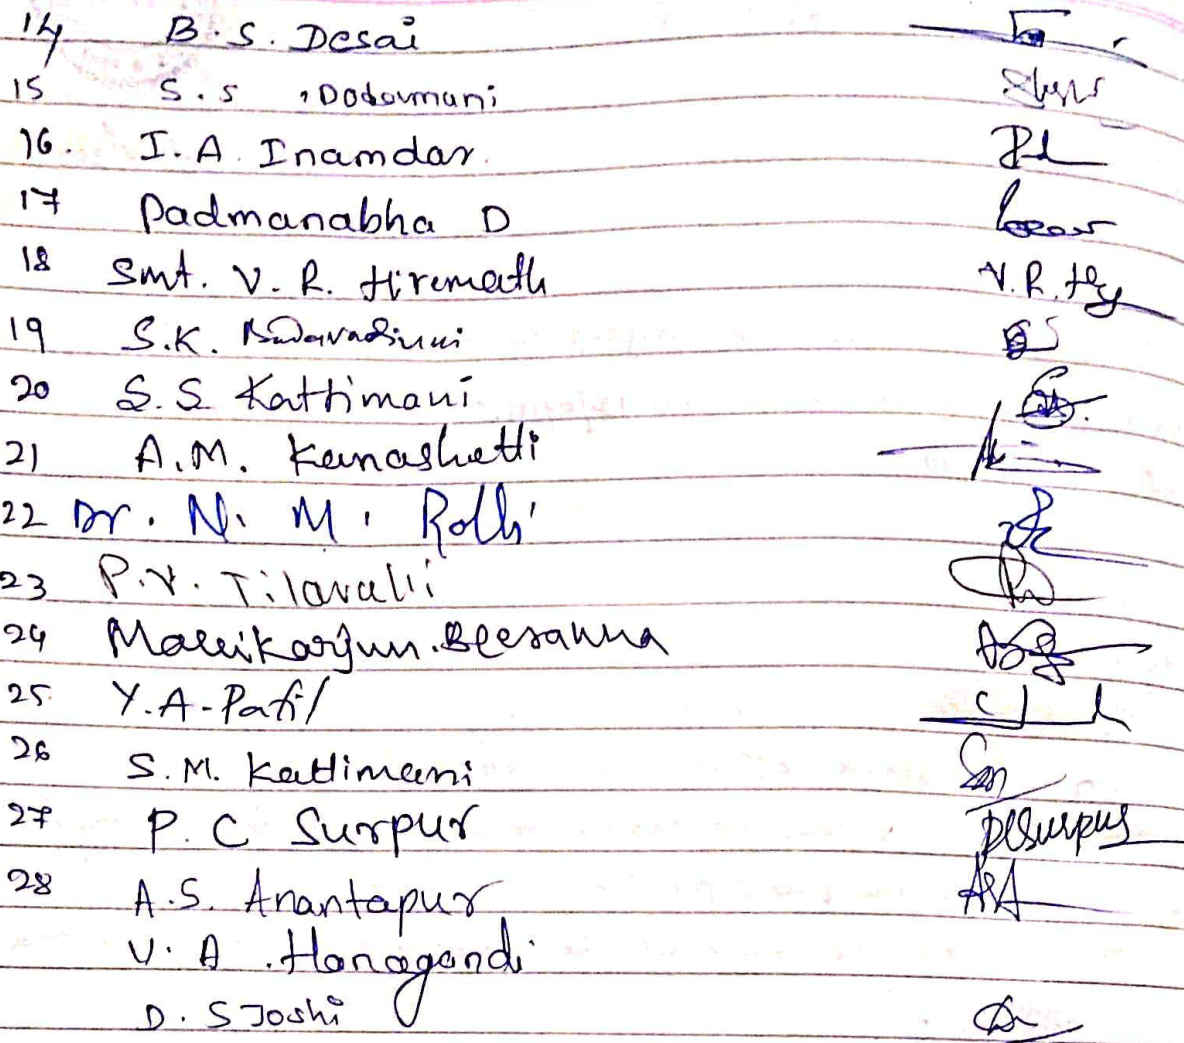 14 B. S. Desai
15 S. S. Dodamani
16. I. A. Inamdar.
17 Padmanabha D
18 Smt. V. R. Hiremath V. R. H
19 S.K.
20 S. S. Kattimani
21 A. M. Kanashetti
22 Dr. N. M. Rolli
23 P. V. Tilavalli
24 Mallikarjun. Beesanna
25 Y. A - Patil
26 S. M. Kattimani
27 P. C Surpur PCSurpur
28 A. S. Anantapur ASA
V. A. Hanagandi
D. S Joshi